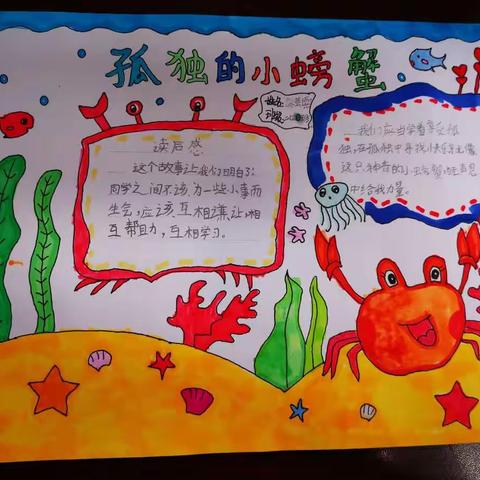 孤独的小螃蟹
姓名
班级
读后感
这个故事让我们明白了:
同学之间不该为一些小事而
生气,应该互相谦让,相
互帮助,互相学习。
我们应当学着享受孤
独,在孤独中寻找快乐,像
这只独奇的小螃蟹,
中给我力量。